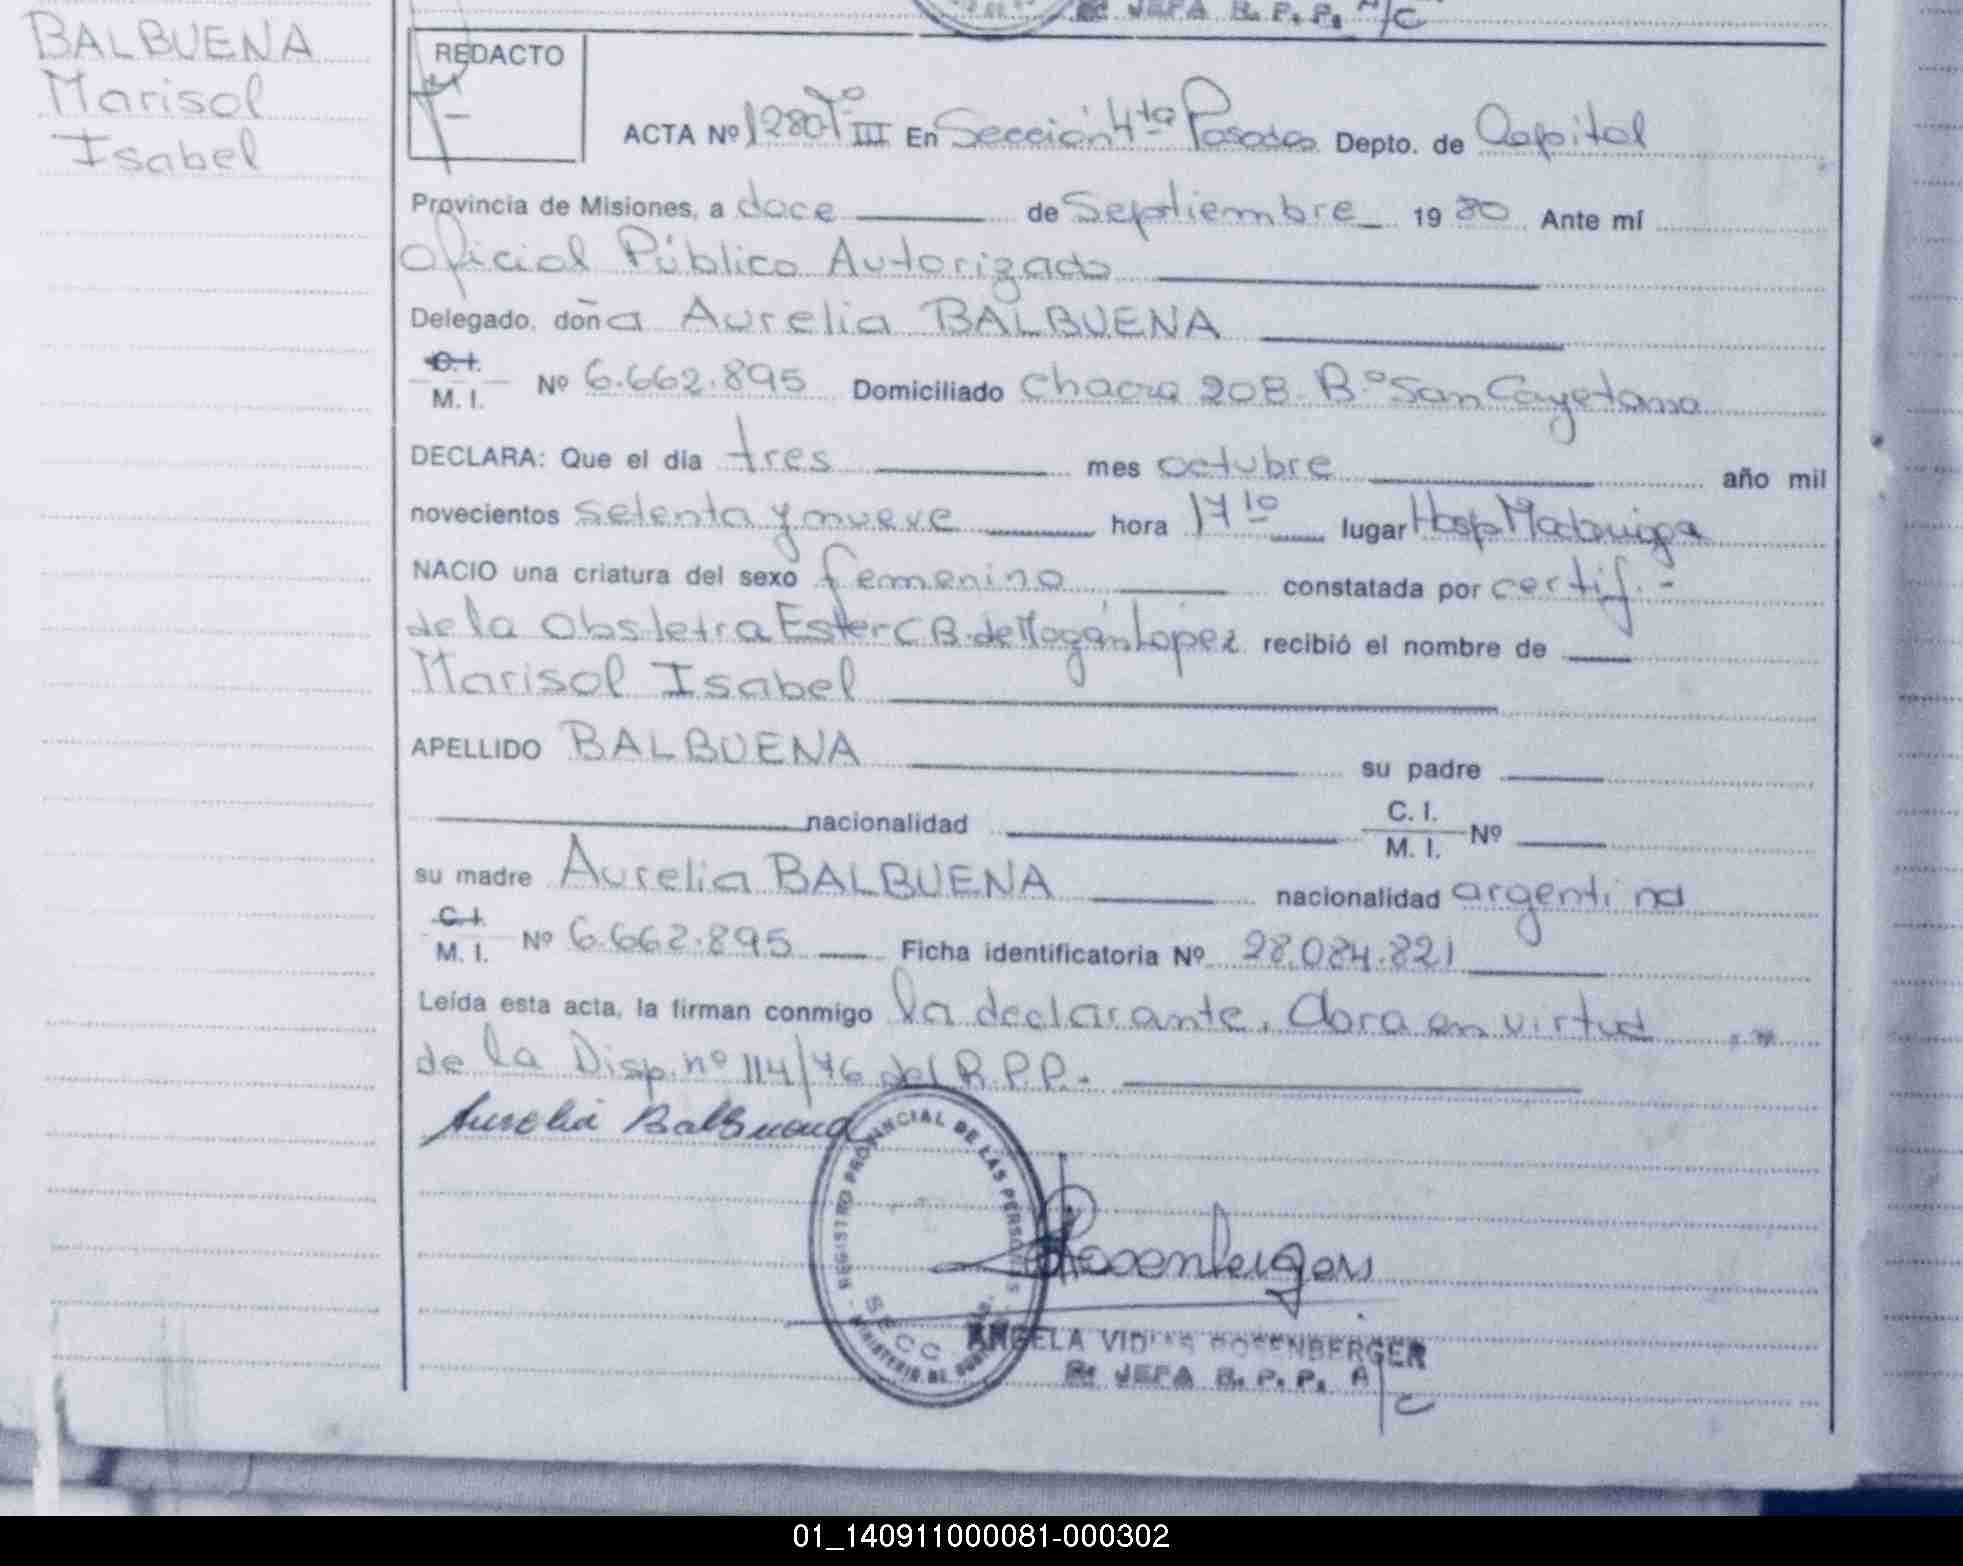 BALBUENA
Marisol
Isabel
JEFA R. P. P. A/C
REDACTO
ACTA Nº 1280 Tº III En Sección 4ta Posadas Depto. de Capital
Provincia de Misiones, a doce de Septiembre 1980 Ante mí
Oficial Público Autorizado
Delegado, doña Aurelia BALBUENA
C.I.
M. I. Nº 6.662.895 Domiciliado Chacra 208 - Bº San Cayetano
DECLARA: Que el día tres mes octubre año mil
novecientos setenta y nueve hora 17 10 lugar Hosp Madariaga
NACIO una criatura del sexo femenino constatada por certif. -
de la Obstetra Ester C B. de Mogán Lopez recibió el nombre de
Marisol Isabel
APELLIDO BALBUENA su padre
nacionalidad C. I.
M. I. Nº
su madre Aurelia BALBUENA nacionalidad argentina
C.I.
M. I. Nº 6.662.895 Ficha identificatoria Nº 28.084.821
Leída esta acta, la firman conmigo la declarante. Obra en virtud
de la Disp. nº 114/76 del R.P.P.-
Aurelia Balbuena
REGISTRO PROVINCIAL DE LAS PERSONAS
SECC
MINISTERIO DE GOB
Rosenberger
ANGELA ROSENBERGER
JEFA R. P. P. A/C
01_140911000081-000302